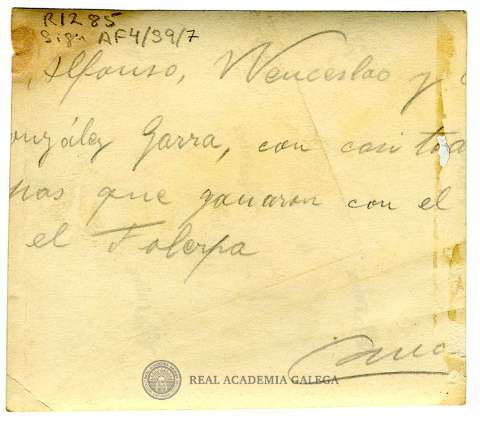 R1285
Sign AF4/39/7
, Alfonso, Wenceslao y
onzález Garra, con casi toda
nas que ganaron con el
el Folerpa
REAL ACADEMIA GALEGA